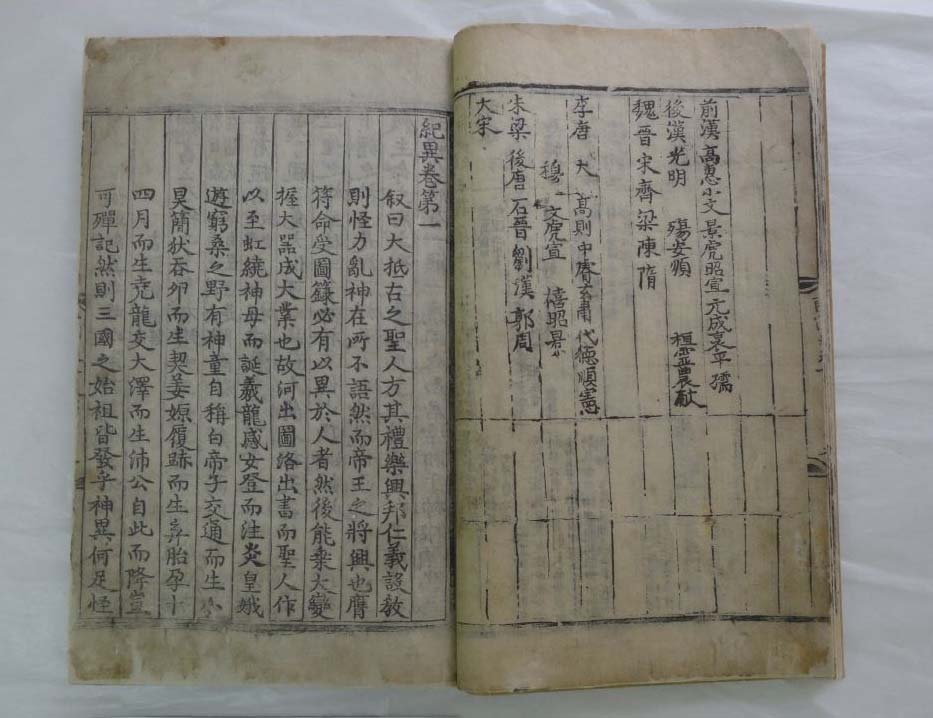 前漢 高惠小文景虎昭宣元成哀平孺
後漢光明 殤安順 桓靈農献
魏晉宋齊梁陳隋
李唐 大高則中睿玄肅代德順憲
穆 文虎宣 僖昭景
朱梁 後唐 石晉 劉漢 郭周
大宋
紀異卷第一
叙曰大抵古之聖人方其禮樂興邦仁義設教
則怪力亂神在所不語然而帝王之將興也膺
符命受圖籙必有以異於人者然後能乘大變
握大器成大業也故河出圖洛出書而聖人作
以至虹繞神母而誕羲龍感女登而注炎皇娥
遊窮桑之野有神童自稱白帝子交通而生小
昊簡狄吞卵而生契姜嫄履跡而生弃胎孕十
四月而生堯龍交大澤而生沛公自此而降豈
可殫記然則三國之始祖皆發乎神異何足怪